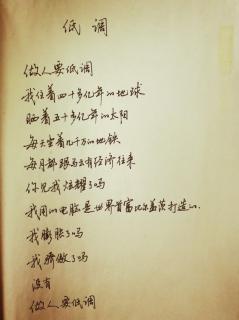 低调
做人要低调
我住着四十多亿年的地球
晒着五十多亿年的太阳
每天坐着几千万的地铁
每月都跟马云有经济往来
你见我炫耀了吗
我用的电脑是世界首富比尔盖茨打造的.
我膨胀了吗
我骄傲了吗
没有
做人要低调